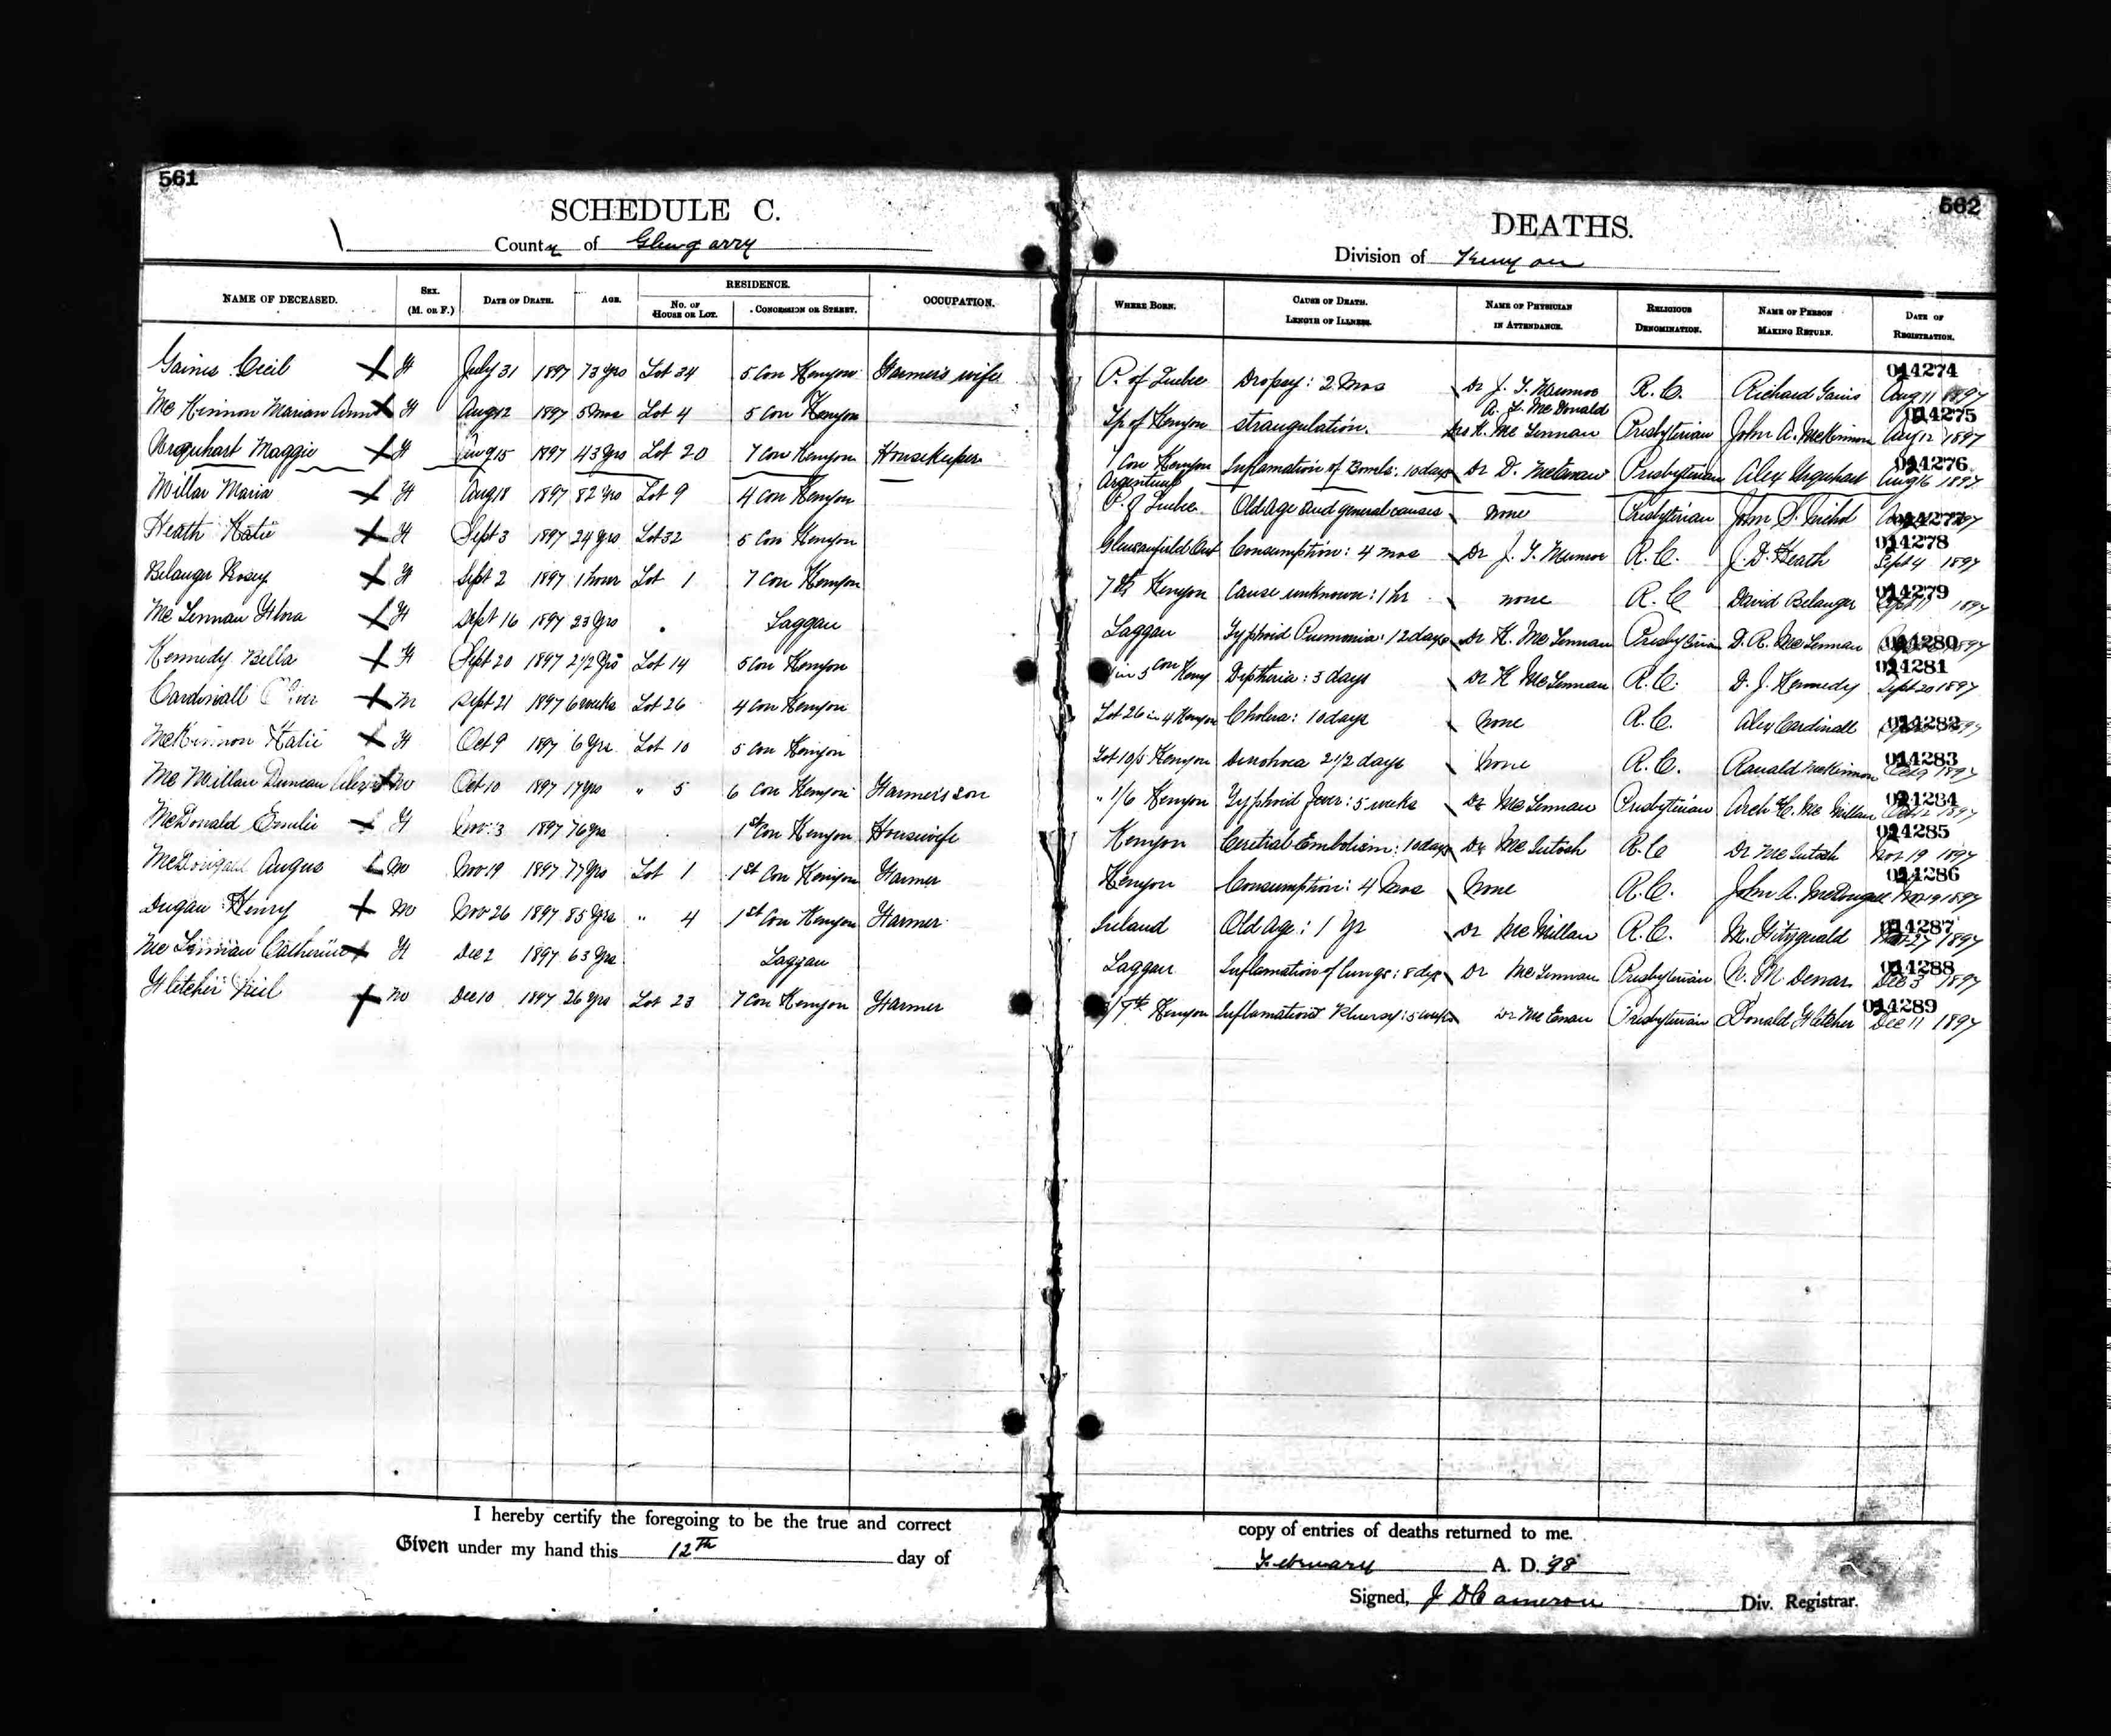 561
SCHEDULE C.
County of Glengarry
NAME OF DECEASED. SEX. (M. OR F.) DATE OF DEATH. AGE. RESIDENCE. NO. OF HOUSE OR LOT. CONCESSION OR STREET. OCCUPATION.
Gainis Cecil F July 31 1897 73 yrs Lot 34 5 Con Kenyon Farmer's wife
McKinnon Marian Ann F Aug 12 1897 5 Mos Lot 4 5 Con Kenyon
Urquhart Maggie F Aug 15 1897 43 yrs Lot 20 7 Con Kenyon Housekeeper
Millar Maria F Aug 18 1897 82 yrs Lot 9 4 Con Kenyon
Heath Katie F Sept 3 1897 24 yrs Lot 32 5 Con Kenyon
Belanger Rosey F Sept 2 1897 1 hour Lot 1 7 Con Kenyon
McLennan Flora F Sept 16 1897 23 yrs Laggan
Kennedy Bella F Sept 20 1897 2 1/2 yrs Lot 14 5 Con Kenyon
Cardinall M Sept 21 1897 6 weeks Lot 26 4 Con Kenyon
McKinnon Katie F Oct 9 1897 6 yrs Lot 10 5 Con Kenyon
McMillan Duncan M Oct 10 1897 17 yrs " 5 6 Con Kenyon Farmer's son
McDonald Emilie F Nov 3 1897 76 yrs 1st Con Kenyon Housewife
McDougall Angus M Nov 19 1897 77 yrs Lot 1 1st Con Kenyon Farmer
Dugan Henry M Nov 26 1897 85 yrs " 4 1st Con Kenyon Farmer
McLennan Catherine F Dec 2 1897 63 yrs Laggan
Fletcher Neil M Dec 10 1897 26 yrs Lot 23 7 Con Kenyon Farmer
I hereby certify the foregoing to be the true and correct
Given under my hand this 12th day of
562
DEATHS.
Division of Kenyon
WHERE BORN. CAUSE OF DEATH. LENGTH OF ILLNESS. NAME OF PHYSICIAN IN ATTENDANCE. RELIGIOUS DENOMINATION. NAME OF PERSON MAKING RETURN. DATE OF REGISTRATION.
014274
P. of Quebec Dropsy: 2 Mos Dr J. T. Munroe R. C. Richard Gainis Aug 11 1897
A. L. McDonald 014275
Tp of Kenyon strangulation. Drs K. McLennan Presbyterian John A. McKinnon Aug 12 1897
014276
7 Con Kenyon Inflamation of Bowels: 10 days Dr D. McEwen Presbyterian Alex Urquhart Aug 16 1897
P. of Quebec Old Age and general causes none Presbyterian John S. Nichol 014277
014278
Consumption: 4 mos Dr J. T. Munroe R. C. J. D. Heath Sept 4 1897
014279
7th Kenyon Cause unknown: 1 hr none R. C. David Belanger 1897
Laggan Typhoid Pnemonia: 12 days Dr K. McLennan Presbyterian D. R. McLennan 014280
014281
in 5 Con Keny Diptheria: 3 days Dr K McLennan R. C. D. J. Kennedy Sept 20 1897
Lot 26 in 4 Kenyon Cholera: 10 days None R. C. Alex Cardinall 014282
014283
Lot 10/5 Kenyon 2 1/2 days None R. C. Ranald McKinnon Oct 9 1897
014284
" 1/6 Kenyon Typhoid fever: 5 weeks Dr McLennan Presbyterian Arch McMillan Oct 12 1897
014285
Kenyon Embolism: 10 days Dr McIntosh R. C Dr McIntosh Nov 19 1897
014286
Kenyon Consumption: 4 Mos None R. C. John A. McDougall Nov 19 1897
014287
Ireland Old Age: 1 yr Dr McMillan R. C. M. Fitzgerald Nov 27 1897
014288
Laggan Inflamation of lungs: 8 dys Dr McLennan Presbyterian Dec 3 1897
014289
7th Kenyon Dr McEwan Presbyterian Donald Fletcher Dec 11 1897
copy of entries of deaths returned to me.
February A. D. 98
Signed, J D Cameron Div. Registrar.